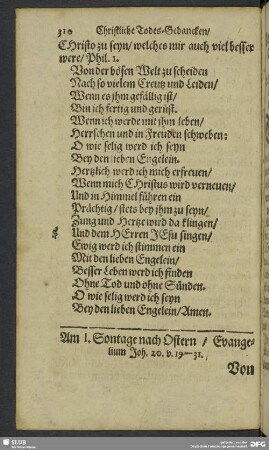 310 Christliche Todts-Gedancken/
CHristo zu seyn/ welches mir auch viel besser
were/ Phil. 1.
Von der bösen Welt zu scheiden
Nach so vielem Creutz und Leiden/
Wenn es jhm gefällig ist/
Bin ich fertig und gerüst.
Wenn ich werde mit jhm leben/
Herrschen und in Freuden schweben:
O wie selig werd ich seyn
Bey den lieben Engelein.
Hertzlich werd ich mich erfreuen/
Wenn mich CHristus wird verneuen/
Und in Himmel führen ein
Prächtig/ stets bey jhm zu seyn/
Zung und Hertze wird da klingen/
Und dem HErren JEsu singen/
Ewig werd ich stimmen ein
Mit den lieben Engelein/
Besser Leben werd ich finden
Ohne Tod und ohne Sünden.
O wie selig werd ich seyn
Bey den lieben Engelein/ Amen.
Am 1. Sontage nach Ostern / Evange-
lium Joh. 20. v. 19–31.
Von
SLUB
DFG